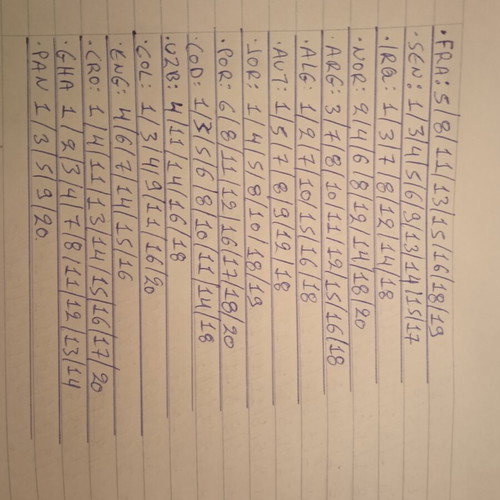 ·FRA: 5/8/11/13/15/16/18/19
·SEN: 1/3/4/5/6/9/13/14/15/17
·IRQ: 1/3/7/8/12/14/18
·NOR: 2/4/6/8/12/14/18/20
ARG: 3/7/8/10/11/12/15/16/18
·ALG: 1/2/7/10/15/16/18
·AUT: 1/5/7/8/9/12/18
·JOR: 1/4/5/8/10/18/19
·POR: 6/8/11/12/16/17/18/20
·COD: 1/3/5/6/8/10/11/14/18
·UZB: 4/11/14/16/18
·COL: 1/3/4/9/11/16/20
·ENG: 4/6/7/14/15/16
·CRO: 1/4/11/13/14/15/16/17/20
·GHA 1/2/3/4/7/8/11/12/13/14
·PAN 1/3/5/9/20.